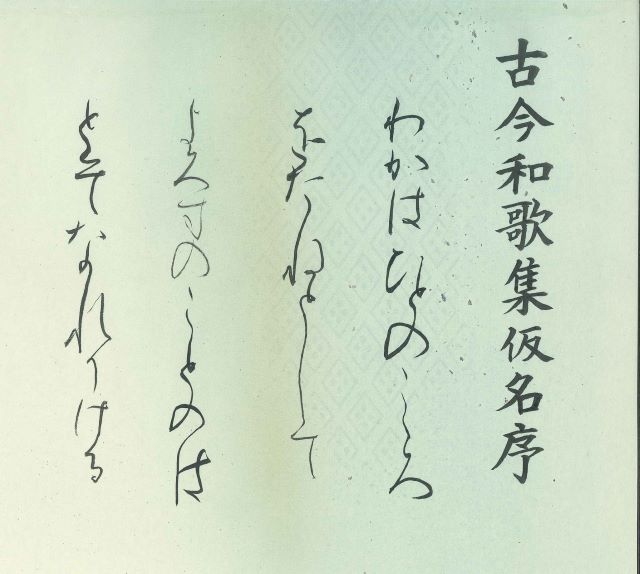 古今和歌集仮名序
わかはひとのこころ
をたねとして
よろすのことのは
とそなれりける